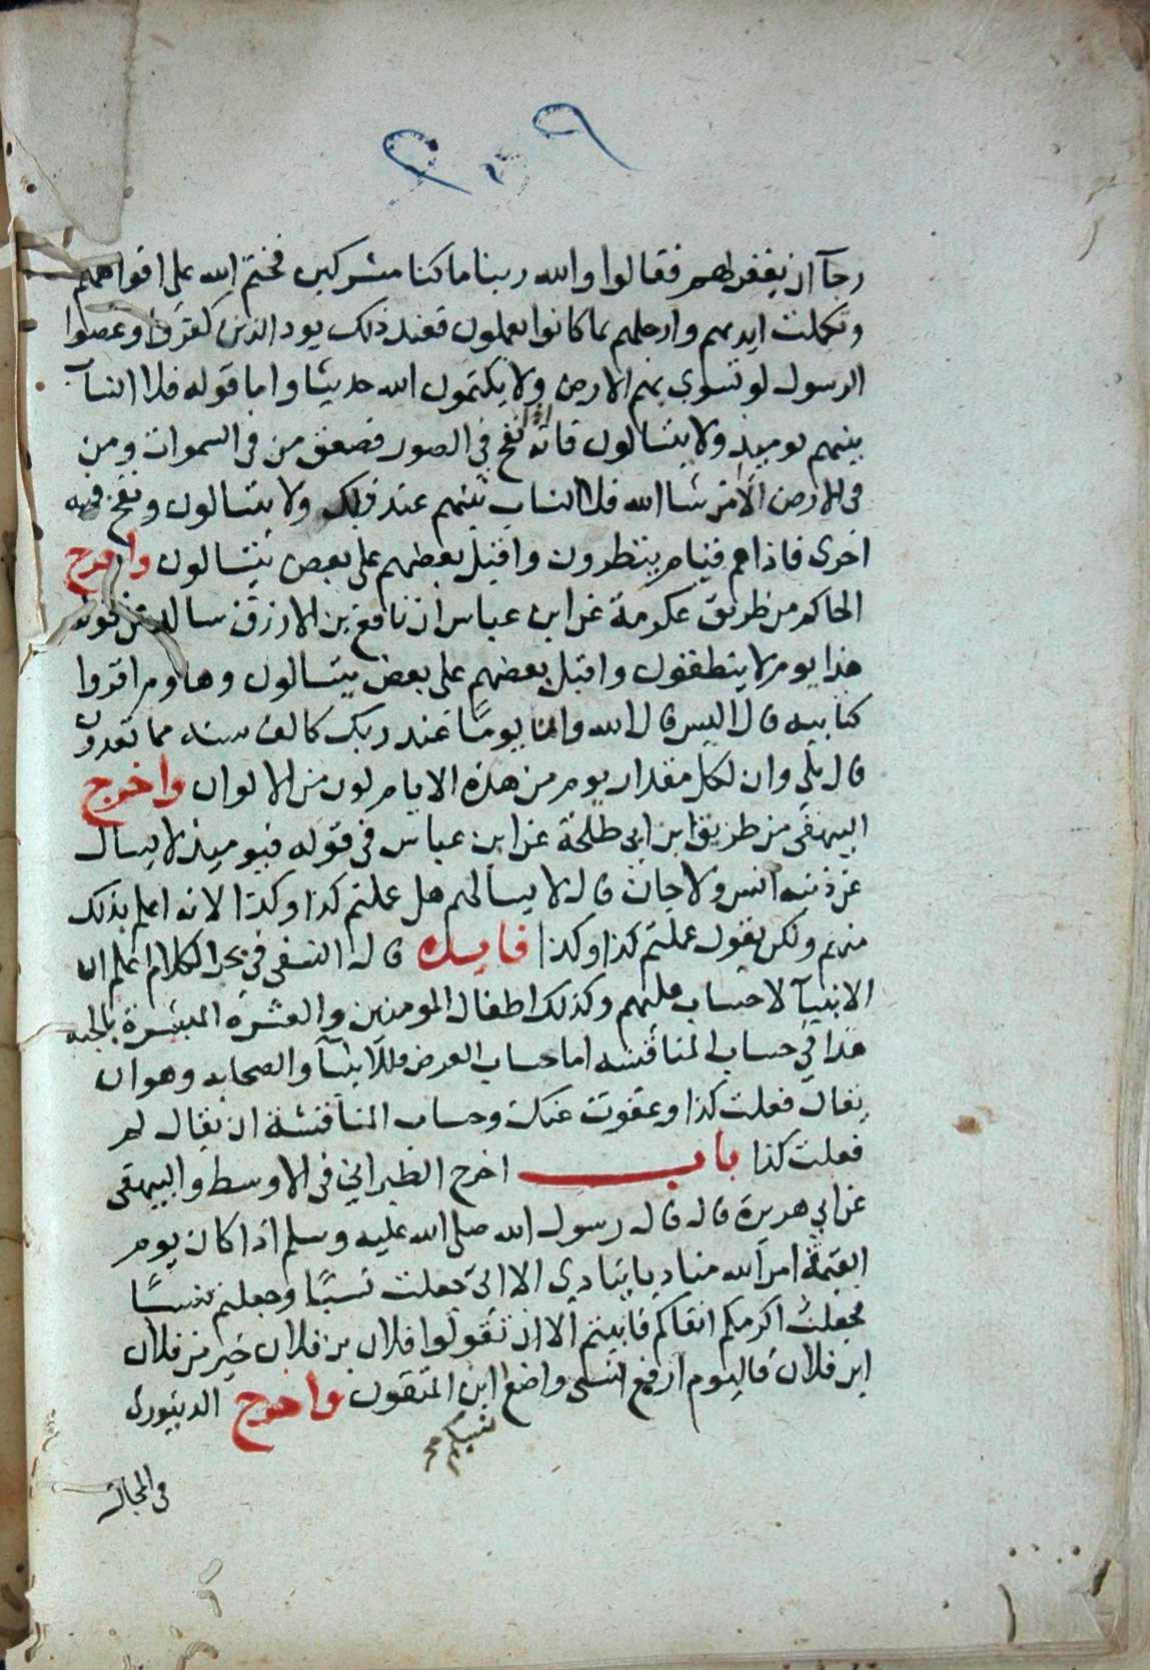 ٩ ٠ ٩
رجآ ان يغفر لهم فقالوا والله ربنا ما كنا مشركين فختم الله على افواههم
وتكلمت ايديهم وارجلهم بما كانوا يعملون فعند ذلك يود الذين كفروا وعصوا
الرسول لو تسوى بهم الارض ولا يكتمون الله حديثا واما قوله فلا انسآب
بينهم يوميذ ولا يتسالون فانه اذا نفخ في الصور فصعق من في السموات ومن
في الارض الا من شا الله فلا انساب بينهم عند ذلك ولا يتسالون ونفخ فيه
اخرى فاذا هم قيام ينتظرون واقبل بعضهم على بعض يتسالون واخرج
الحاكم من طريق عكرمة عن ابن عباس ان نافع بن الازرق ساله عن قوله
هذا يوم لا ينطقون واقبل بعضهم على بعض يتسالون وهاوم اقروا
كتابيه قال اليس قال الله وان يوما عند ربك كالف سنه مما تعدون
قال بلى وان لكل مقدار يوم من هذه الايام لون من الالوان واخرج
البيهقى من طريق ابن ابي طلحة عن ابن عباس في قوله فيوميذ لا يسال
عن ذنبه انس ولا جان قال لا يسالهم هل عملتم كذا وكذا لانه اعلم بذلك
منهم ولكن يقول عملتم كذا وكذا فايده قال النسفى في بحر الكلام اعلم ان
الانبيآ لا حساب عليهم وكذلك اطفال المومنين والعشره المبشرة بالجنه
هذا في حساب المناقشه اما حساب العرض فللانبيآ والصحابه وهو ان
يقال فعلت كذا وعفوت عنك وحساب المناقشة ان يقال لم
فعلت كذا باب اخرج الطبراني في الاوسط والبيهقى
عن ابي هريرة قال قال رسول الله صلى الله عليه وسلم اذا كان يوم
القيمة امر الله مناديا ينادي الا اني جعلت نسبًا وجعلتم نسبًا
فجعلت اكرمكم اتقاكم فابيتم الا ان تقولوا فلان بن فلان خير من فلان
ابن فلان فاليوم ارفع نسبى واضع نسبكم اين المتقون واخرج الدينورى
في المجالـ